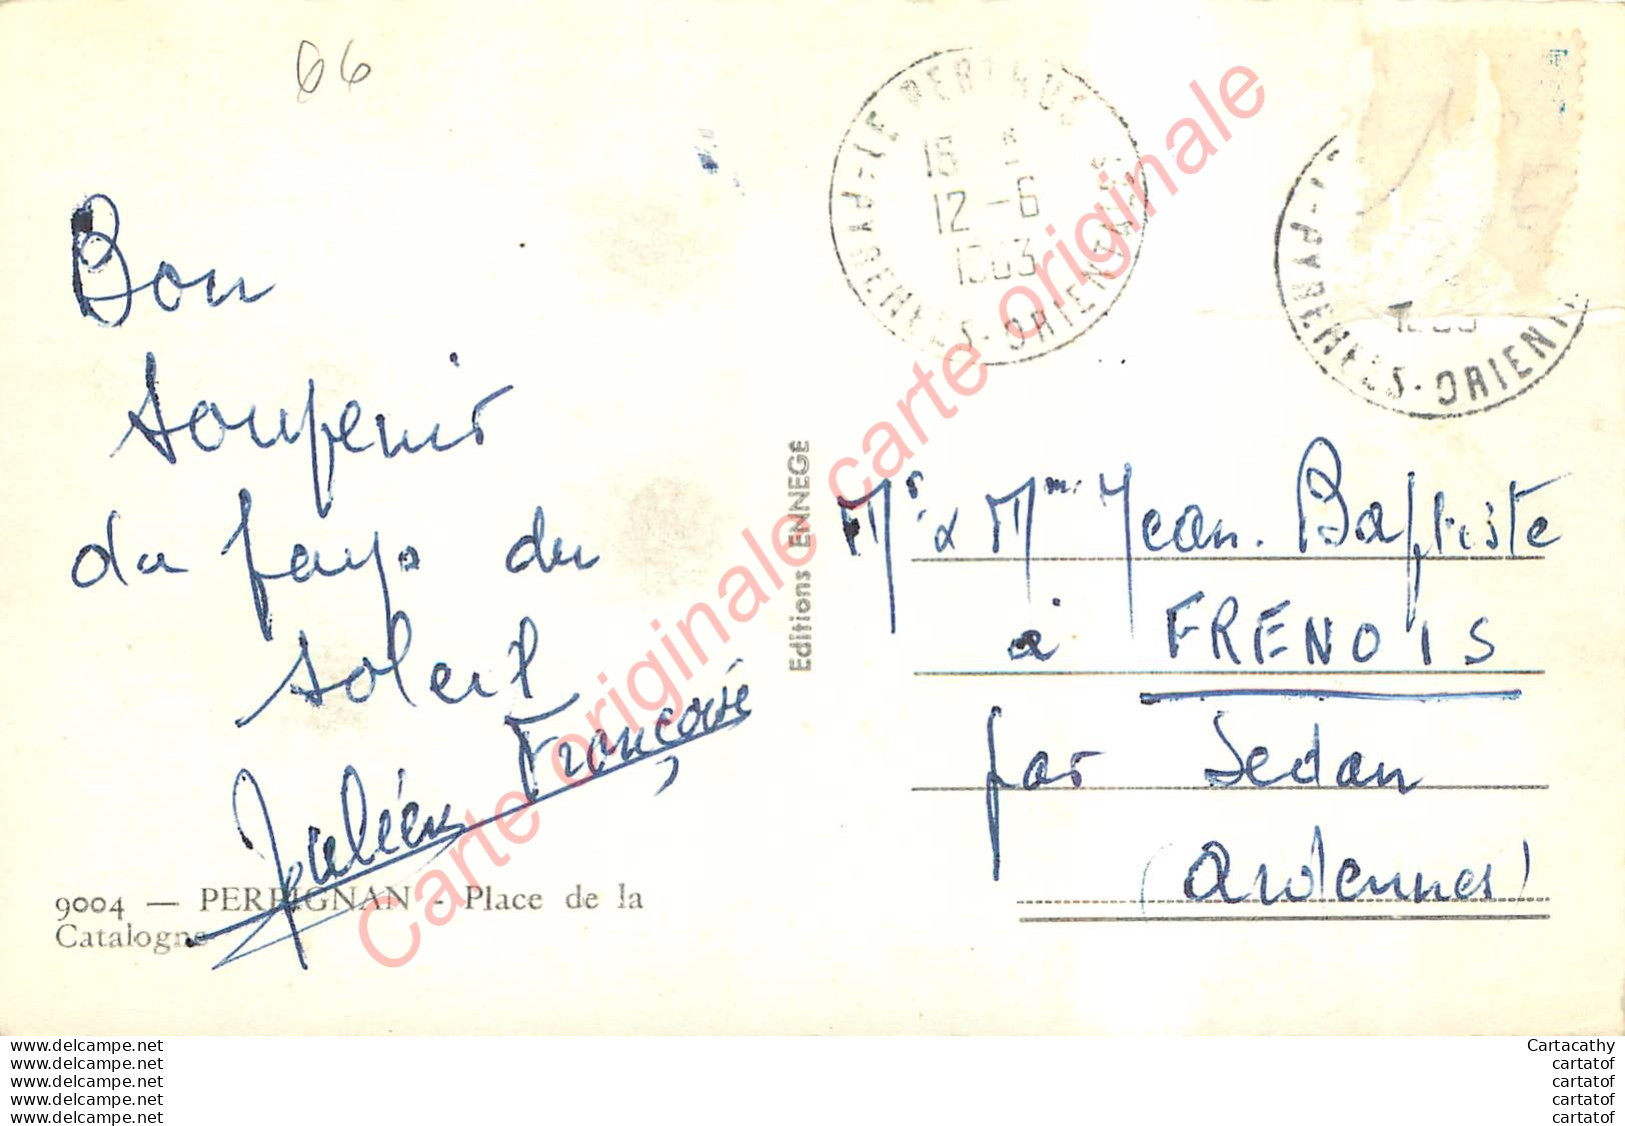 66
LE PERTHUS
18
12-6
PYRENEES-ORIENTALES
Bon
Souvenir
du pays du
soleil
Julien Françoise
9004 — PERPIGNAN - Place de la
Catalogne
Editions ENNEGE
Mr & Mme Jean. Baptiste
à FRENOIS
par Sedan
(Ardennes)
PYRENEES-ORIENT
Carte originale carte originale
www.delcampe.net
www.delcampe.net
www.delcampe.net
www.delcampe.net
www.delcampe.net
Cartacathy
cartatof
cartatof
cartatof
cartatof